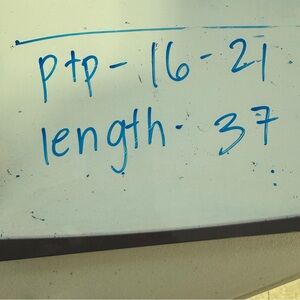 ptp - 16 - 21
length - 37